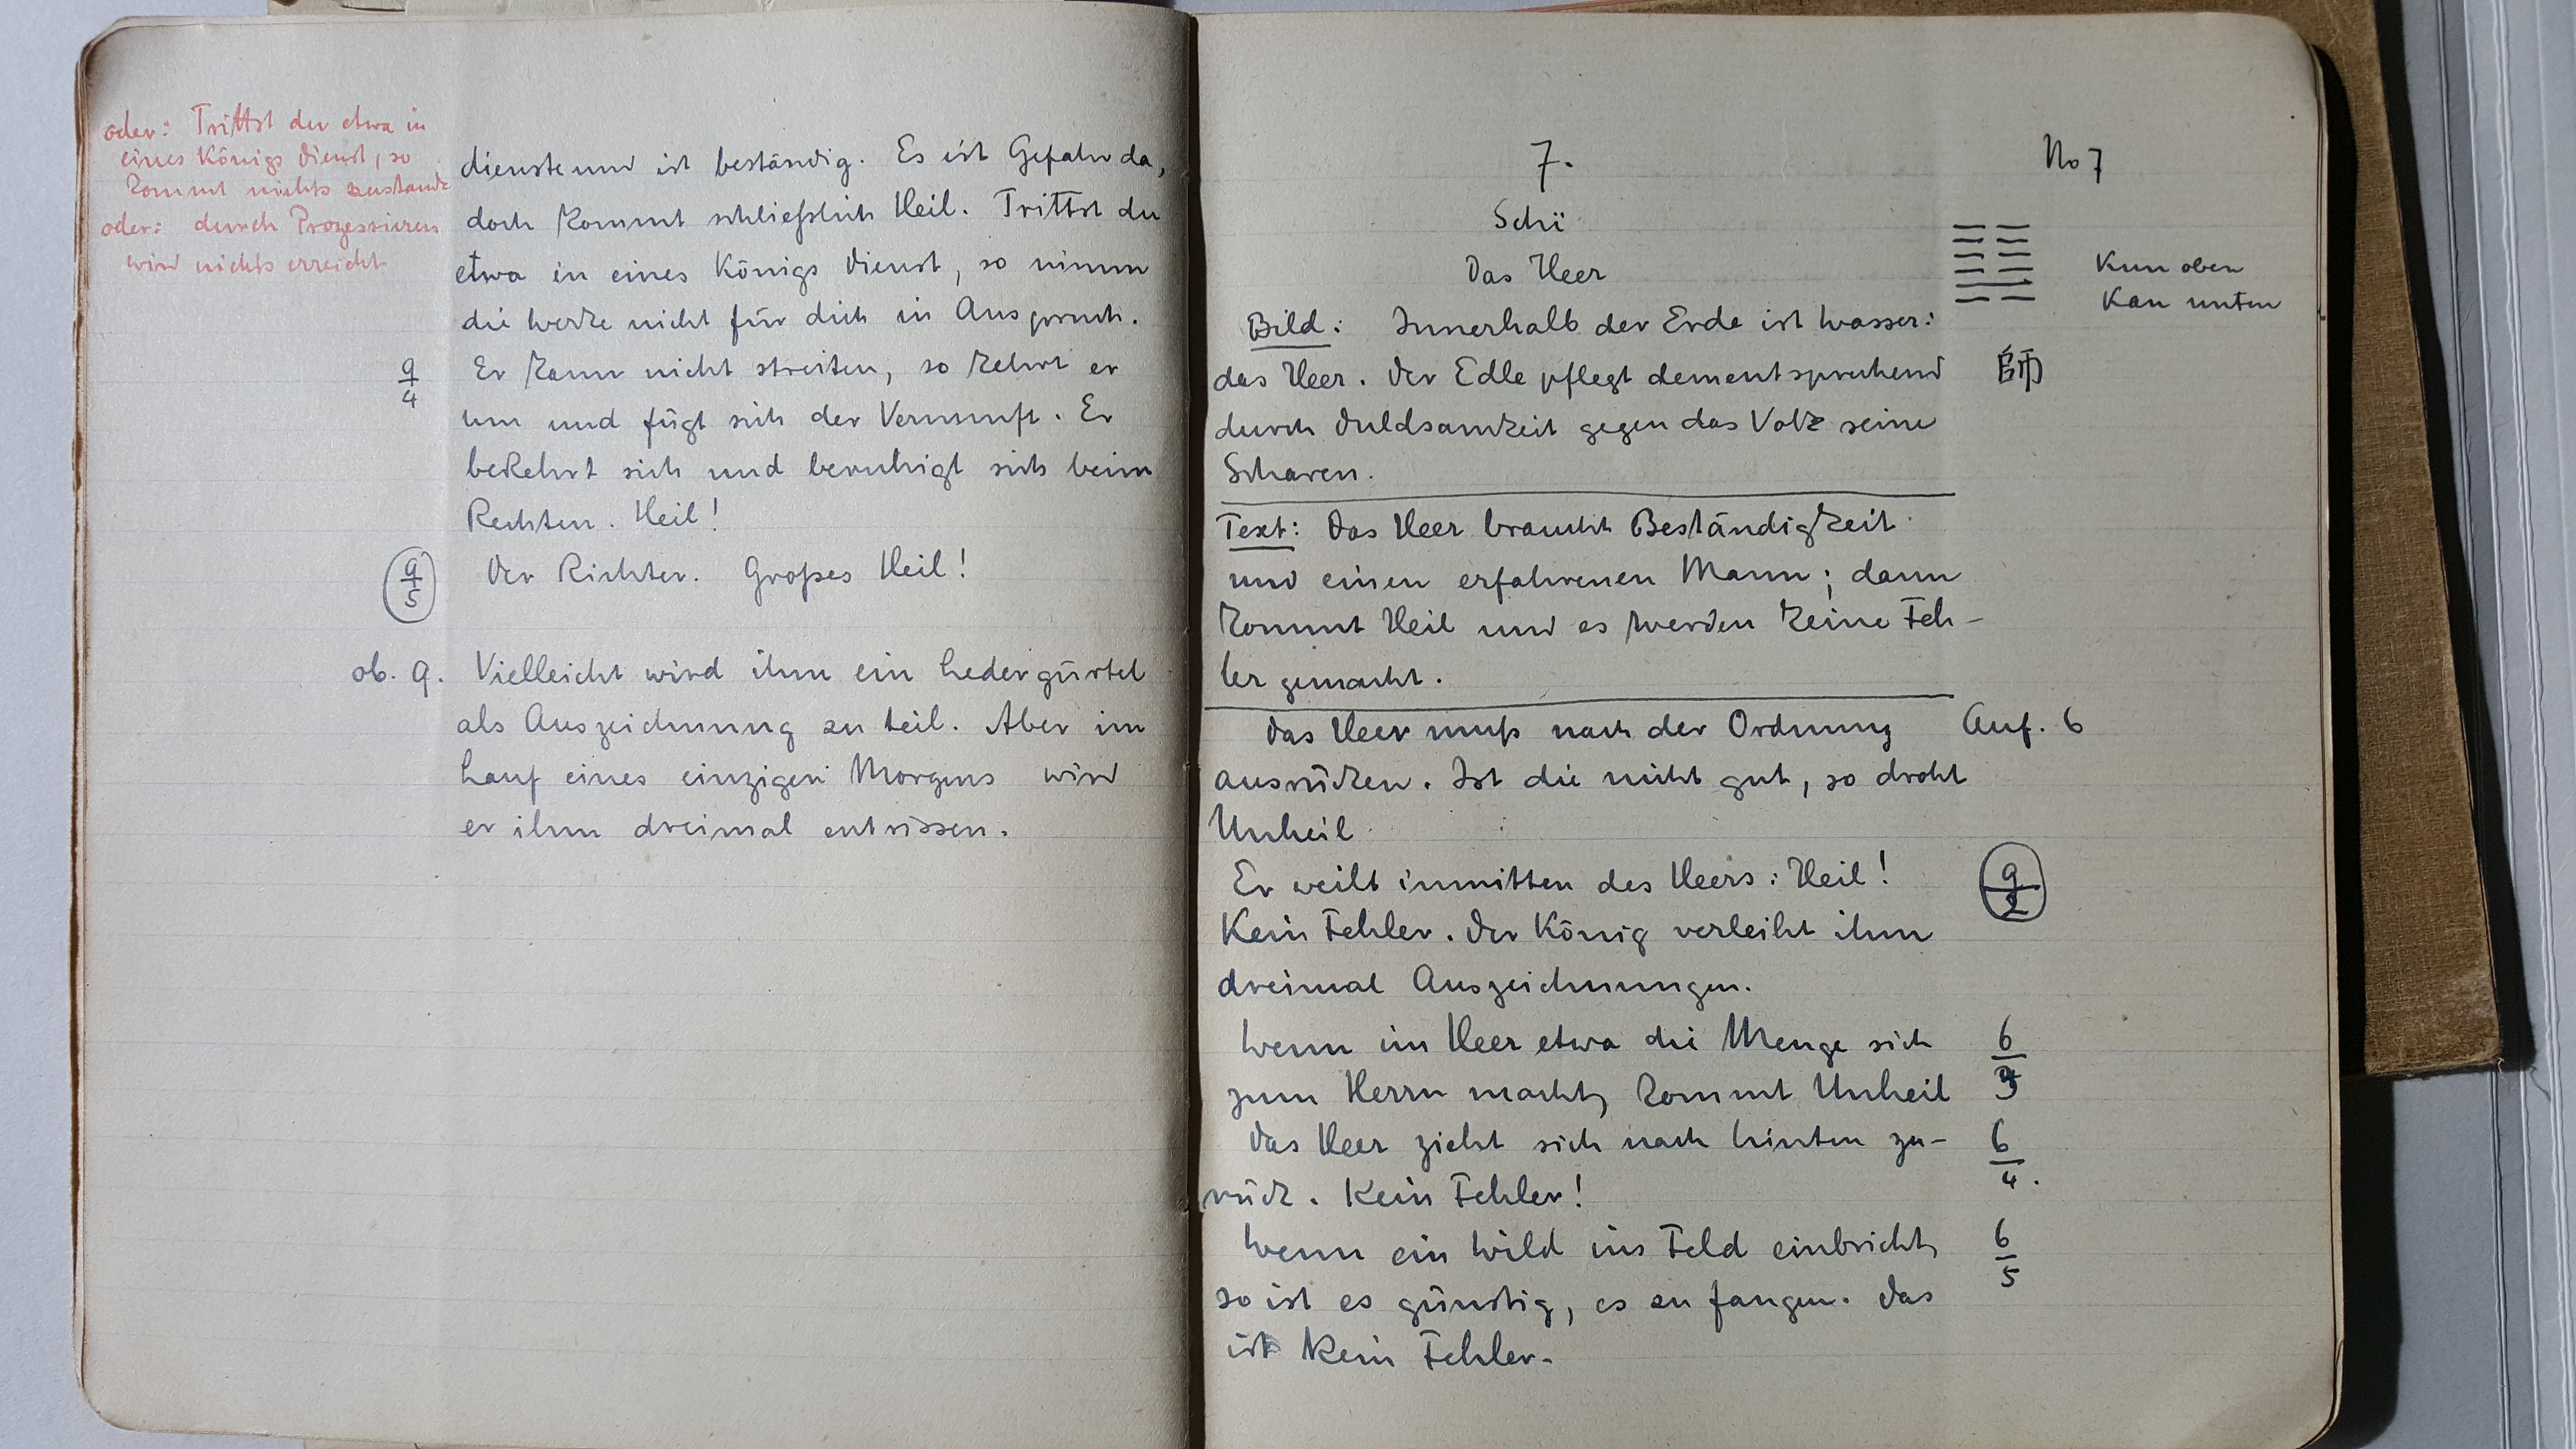 oder: Trittst du etwa in
eines Königs Dienst, so
kommt nichts zustande
oder: durch Prozessieren
wird nichts erreicht
dienste und ist beständig. Es ist Gefahr da,
doch kommt schließlich Heil. Trittst du
etwa in eines Königs Dienst, so nimm
die Werke nicht für dich in Anspruch.
9/4 Er kann nicht streiten, so kehrt er
um und fügt sich der Vernunft. Er
bekehrt sich und beruhigt sich beim
Rechten. Heil!
9/5 Der Richter. Großes Heil!
ob. 9. Vielleicht wird ihm ein Ledergürtel
als Auszeichnung zu teil. Aber im
Lauf eines einzigen Morgens wird
er ihm dreimal entrissen.
7. No 7
Schï
Das Heer
Kun oben
Kan unten
Bild: Innerhalb der Erde ist Wasser:
das Heer. Der Edle pflegt dementsprechend 師
durch Duldsamkeit gegen das Volk seine
Scharen.
Text: Das Heer braucht Beständigkeit
und einen erfahrenen Mann; dann
kommt Heil und es werden keine Feh-
ler gemacht.
Das Heer muß nach der Ordnung Anf. 6
ausrücken. Ist die nicht gut, so droht
Unheil
Er weilt inmitten des Heers: Heil! 9/2
Kein Fehler. Der König verleiht ihm
dreimal Auszeichnungen.
Wenn im Heer etwa die Menge sich 6/3
zum Herrn macht, kommt Unheil
Das Heer zieht sich nach hinten zu- 6/4.
rück. Kein Fehler!
Wenn ein Wild ins Feld einbricht, 6/5
so ist es günstig, es zu fangen. Das
ist kein Fehler.